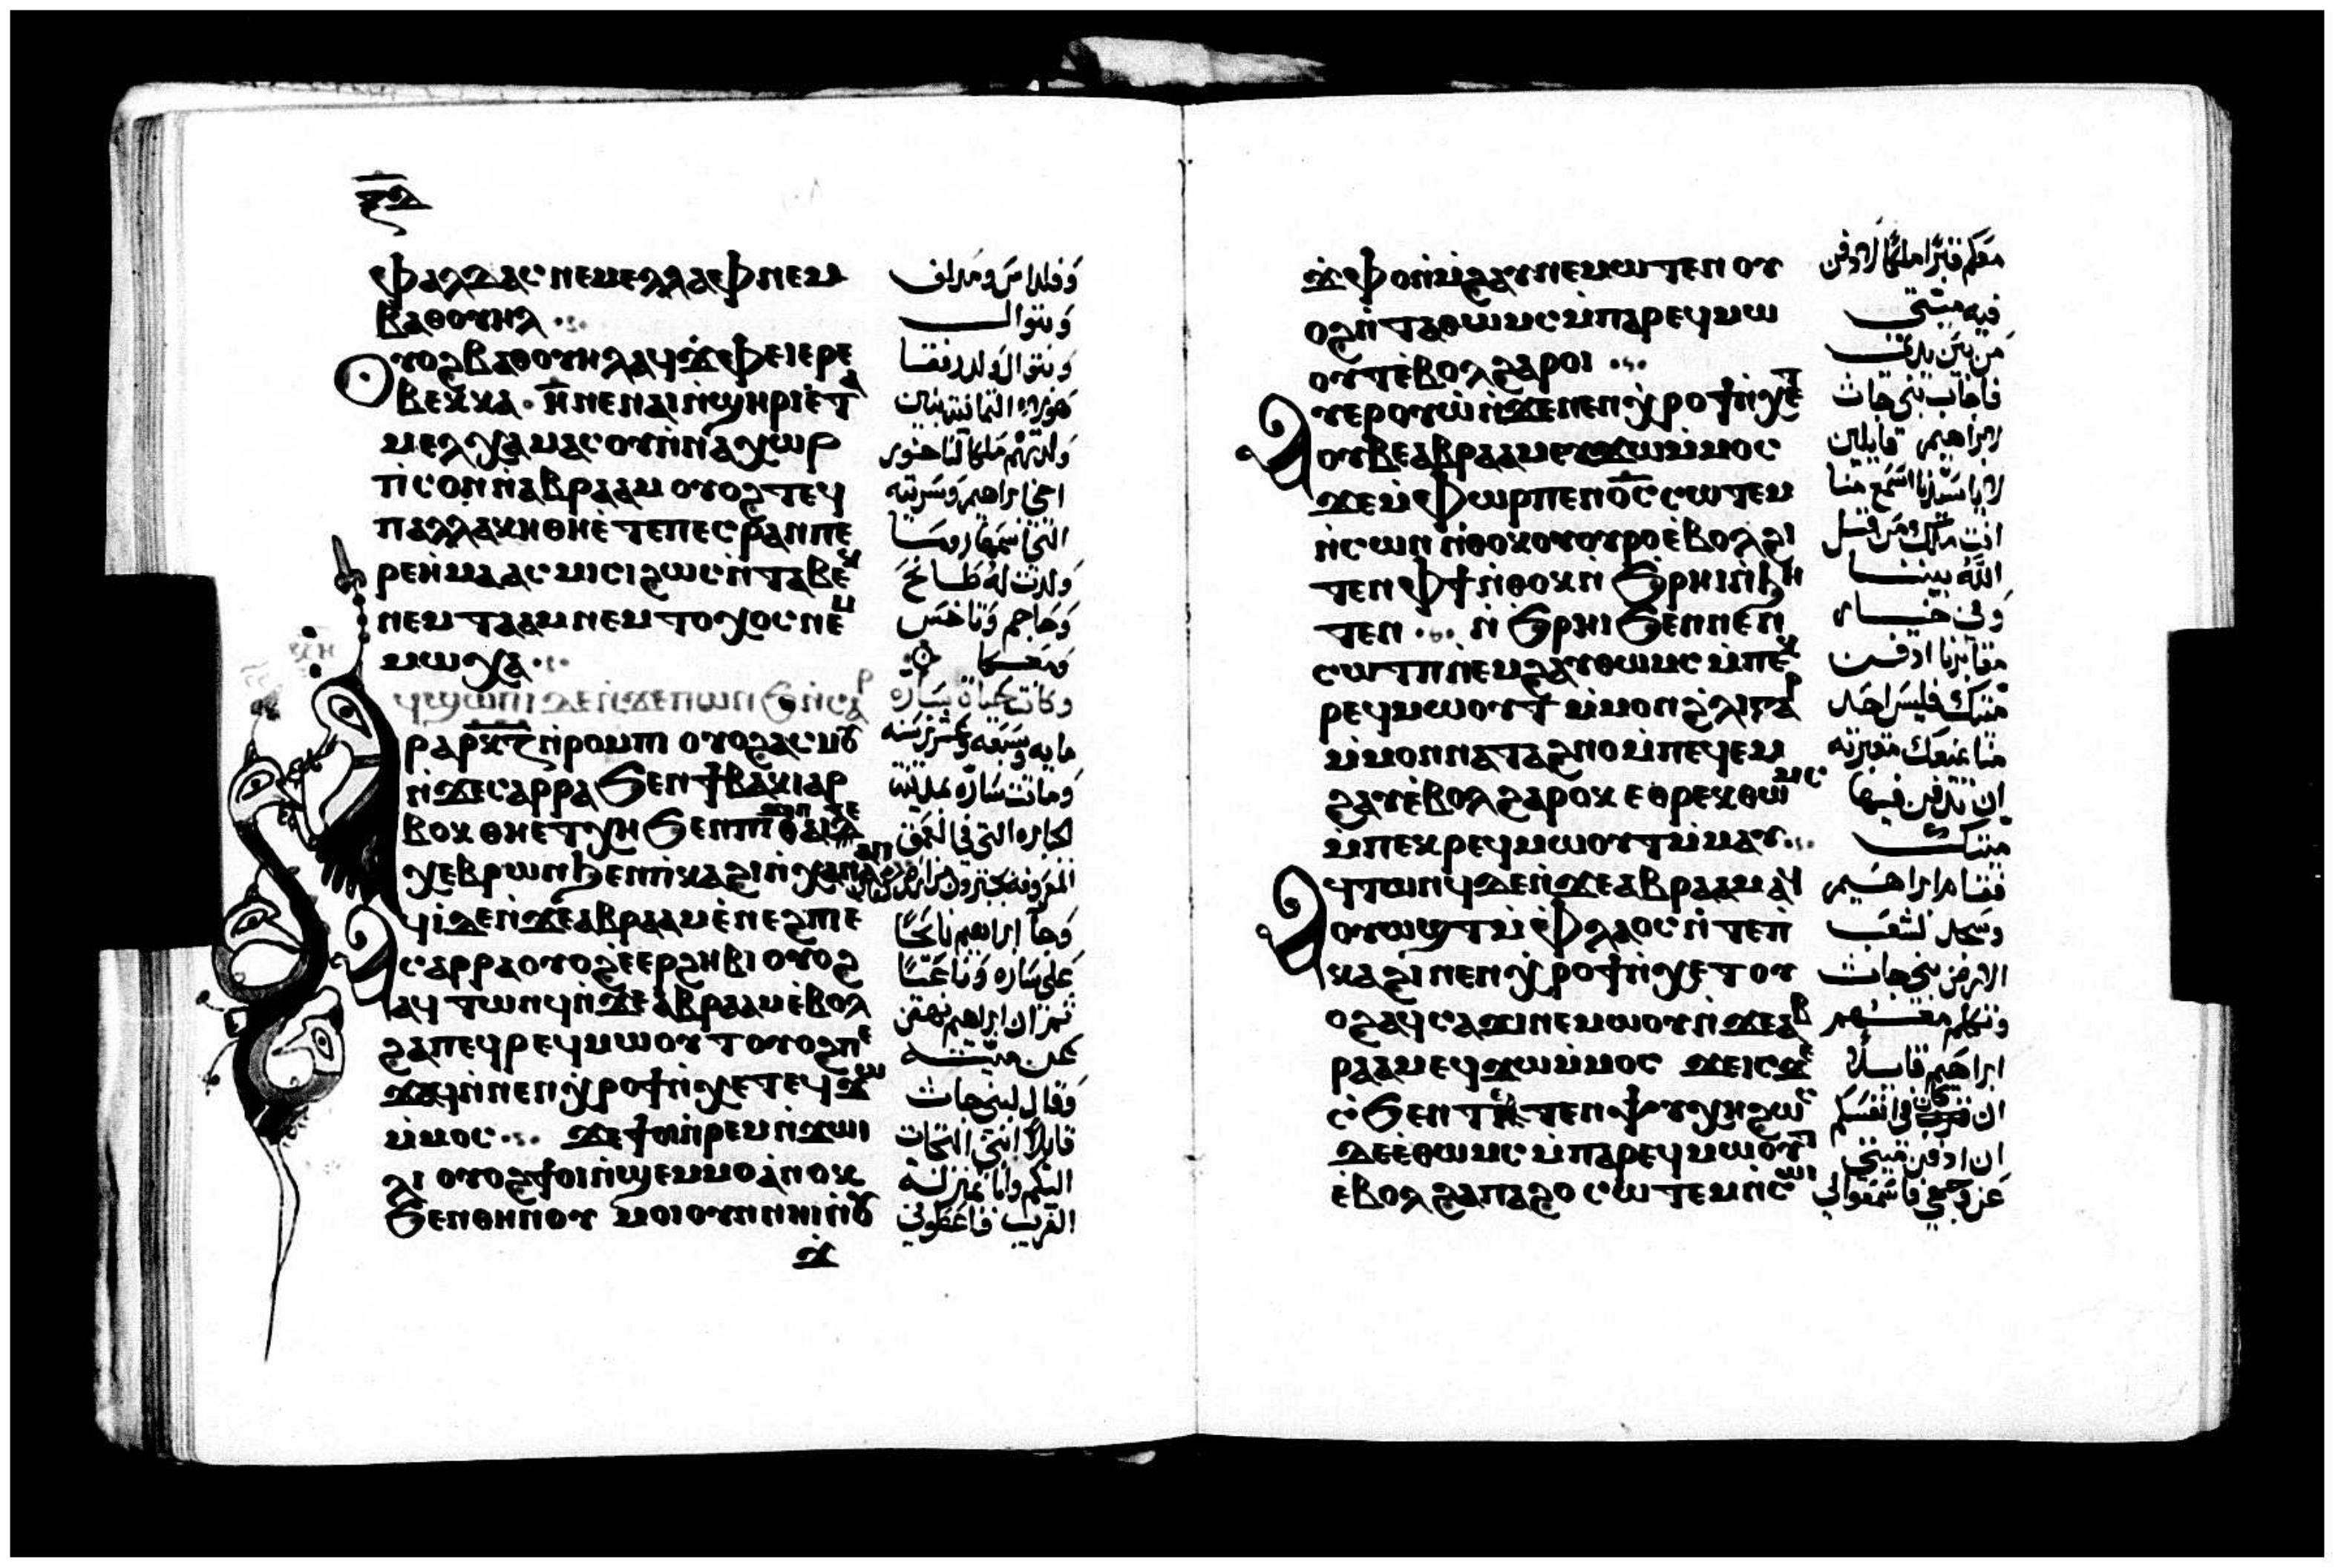 ⲝⲇ
ⲫⲁⲗⲇⲁⲥ ⲛⲉⲙ ⲉⲗⲗⲁⲫ ⲛⲉⲙ
ⲃⲁⲑⲟⲩⲏⲗ
ⲟⲩⲟϩ ⲃⲁⲑⲟⲩⲏⲗ ⲁϥϫⲫⲉ ⲓⲉⲣⲉ
ⲃⲉⲕⲕⲁ · ⲏ̅ ⲛⲉ ⲛⲁⲓ ⲛ̀ϣⲏⲣⲓ ⲉ̀ⲧⲁ
ⲙⲉⲗⲭⲁ ⲙⲁⲥⲟⲩ ⲛ̀ⲛⲁⲭⲱⲣ
ⲡⲓⲥⲟⲛ ⲛ̀ⲁⲃⲣⲁⲁⲙ ⲟⲩⲟϩ ⲧⲉϥ
ⲡⲁⲗⲗⲁⲕⲏ ⲑⲏⲉ̀ⲧⲉ ⲡⲉⲥⲣⲁⲛ ⲡⲉ
ⲣⲉⲏⲙⲁ ⲁⲥⲙⲓⲥⲓ ϩⲱⲥ ⲛ̀ⲧⲁⲃⲉⲕ
ⲛⲉⲙ ⲧⲁⲁⲙ ⲛⲉⲙ ⲧⲟⲭⲟⲥ ⲛⲉⲙ
ⲙⲱⲭⲁ
ϥϣⲱⲡⲓ ⲇⲉ ⲛ̀ϫⲉ ⲡⲱⲛϧ ⲛ̀ⲥⲁⲣ
ⲣⲁ ⲣⲕⲍ ⲛ̀ⲣⲟⲙⲡⲓ ⲟⲩⲟϩ ⲁⲥⲙⲟⲩ
ⲛ̀ϫⲉ ⲥⲁⲣⲣⲁ ϧⲉⲛ ϯⲃⲁⲕⲓ ⲁⲣ
ⲃⲟⲕ ⲑⲏⲉⲧⲭⲏ ϧⲉⲛ
ⲭⲉⲃⲣⲱⲛ ϧⲉⲛ ⲡⲕⲁϩⲓ ⲛ̀ⲭⲁⲛⲁⲁⲛ
ⲁϥⲓ̀ ⲇⲉ ⲛ̀ϫⲉ ⲁⲃⲣⲁⲁⲙ ⲉ̀ⲛⲉϩⲡⲓ ⲉ
ⲥⲁⲣⲣⲁ ⲟⲩⲟϩ ⲉ̀ⲉⲣϩⲏⲃⲓ ⲟⲩⲟϩ
ⲁϥⲧⲱⲛϥ ⲛ̀ϫⲉ ⲁⲃⲣⲁⲁⲙ ⲉ̀ⲃⲟⲗ
ϩⲁ ⲡⲉϥⲣⲉϥⲙⲱⲟⲩⲧ ⲟⲩⲟϩ ⲡⲉ
ϫⲁϥ ⲛ̀ⲛⲉⲛϣⲏⲣⲓ ⲛ̀ⲭⲉⲧ ⲉϥϫⲱ
ⲙ̀ⲙⲟⲥ ϫⲉ ϯⲟⲓ ⲛ̀ⲣⲉⲙⲛ̀ϫⲱⲓ
ⲗⲓ ⲟⲩⲟϩ ϯⲟⲓ ⲛ̀ϣⲉⲙⲙⲟ ⲁ̀ⲛⲟⲕ
ϧⲉⲛ ⲑⲏⲛⲟⲩ ⲙⲟⲓ ⲟⲩⲛ ⲛⲏⲓ ⲛ̀ⲟⲩ
ϫ̀
وفلداس ومدلف
وبتوال
وبتوال ولد رفقا
هولاي الثمانية بنين
ولدتهم ملكا لناحور
اخي ابراهيم وسريته
التي اسمها روما
ولدت له طاباخ
وجاحم وتاخس
ومعكا
وكانت حياة ساره
مايه وسبعه وعشرين سنه
وماتت ساره
وجا ابراهيم باكيا
علي ساره وناعيا
ثم ان ابراهيم نهض
عن ميته
وقال لبني حاث
قايلا انني انا
القريب فاعطوني
ϫ̀ⲫⲟ ⲙ̀ⲙ̀ϩⲁⲩ ⲛⲉⲙⲱⲧⲉⲛ ⲟⲩ
ⲟϩ ⲛ̀ⲧⲁⲑⲱⲙⲥ ⲙ̀ⲡⲁⲣⲉϥⲙⲱ
ⲟⲩⲧ ⲉ̀ⲃⲟⲗ ϩⲁⲣⲟⲓ
ⲁⲩⲉⲣⲟⲩⲱ̀ ⲛ̀ϫⲉ ⲛⲉⲛϣⲏⲣⲓ ⲛ̀ⲭⲉⲧ
ⲟⲩⲃⲉ ⲁⲃⲣⲁⲁⲙ ⲉⲩϫⲱ ⲙ̀ⲙⲟⲥ
ϫⲉ ⲙ̀ⲫⲱⲣ ⲡⲉⲛⲟ̅ⲥ̅ ⲥⲱⲧⲉⲙ
ⲛ̀ⲥⲱⲛ ⲛ̀ⲑⲟⲕ ⲟⲩⲟⲩⲣⲟ ⲉ̀ⲃⲟⲗ ϩⲓ
ⲧⲉⲛ ⲫϯ ⲛ̀ⲑⲟⲕ ⲛ̀ϧⲣⲏⲓ ⲛ̀ϧⲏ
ⲧⲉⲛ ⲛ̀ϧⲣⲏⲓ ϧⲉⲛ ⲛⲉⲛ
ⲥⲱⲧⲡ ⲛ̀ⲙ̀ϩⲁⲩ ⲑⲱⲙⲥ ⲙ̀ⲡⲉⲕ
ⲣⲉϥⲙⲱⲟⲩⲧ ⲙ̀ⲙⲟⲛ ϩ̀ⲗⲓ ⲅⲁⲣ
ⲙ̀ⲙⲟⲛ ⲛⲁⲧⲁϩⲛⲟ ⲙ̀ⲡⲉϥⲙ̀
ϩⲁⲩ ⲉ̀ⲃⲟⲗ ϩⲁⲣⲟⲕ ⲉⲑⲣⲉⲕⲑⲱⲙⲥ
ⲙ̀ⲡⲉⲕⲣⲉϥⲙⲱⲟⲩⲧ ⲙ̀ⲙⲁⲩ
ⲁϥⲧⲱⲛϥ ⲇⲉ ⲛ̀ϫⲉ ⲁⲃⲣⲁⲁⲙ ⲁϥ
ⲟⲩⲱϣⲧ ⲙ̀ⲫⲗⲁⲟⲥ ⲛ̀ⲧⲉ ⲡⲓ
ⲕⲁϩⲓ ⲛⲉⲛϣⲏⲣⲓ ⲛ̀ⲭⲉⲧ ⲟⲩ
ⲟϩ ⲁϥⲥⲁϫⲓ ⲛⲉⲙⲱⲟⲩ ⲛ̀ϫⲉ ⲁⲃ
ⲣⲁⲁⲙ ⲉϥϫⲱ ⲙ̀ⲙⲟⲥ ϫⲉ ⲓⲥϫⲉ
ϫⲉ ⲉ̀ⲑⲱⲙⲥ ⲙ̀ⲡⲁⲣⲉϥⲙⲱⲟⲩⲧ
ⲉ̀ⲃⲟⲗ ϩⲁ ⲡⲁϩⲟ ⲥⲱⲧⲉⲙ ⲛ̀ⲥⲱⲓ
معكم قبرا ملكا لادفن
فيه ميتي
من بين يدي
فاجاب بني حاث
لابراهيم قايلين
لا يا سيدنا اسمع منا
انت ملك من قبل
الله بيننا
وفي خيار
مقابرنا ادفن
ميتك فليس احد
منا يمنعك مقبرته
ان تدفن فيها
ميتك
فقام ابراهيم
وسجد لشعب
الارض بني حاث
وتكلم معهم
ابراهيم قايلا
ان كان في انفسكم
ان ادفن ميتي
عن وجهي فاسمعوا لي